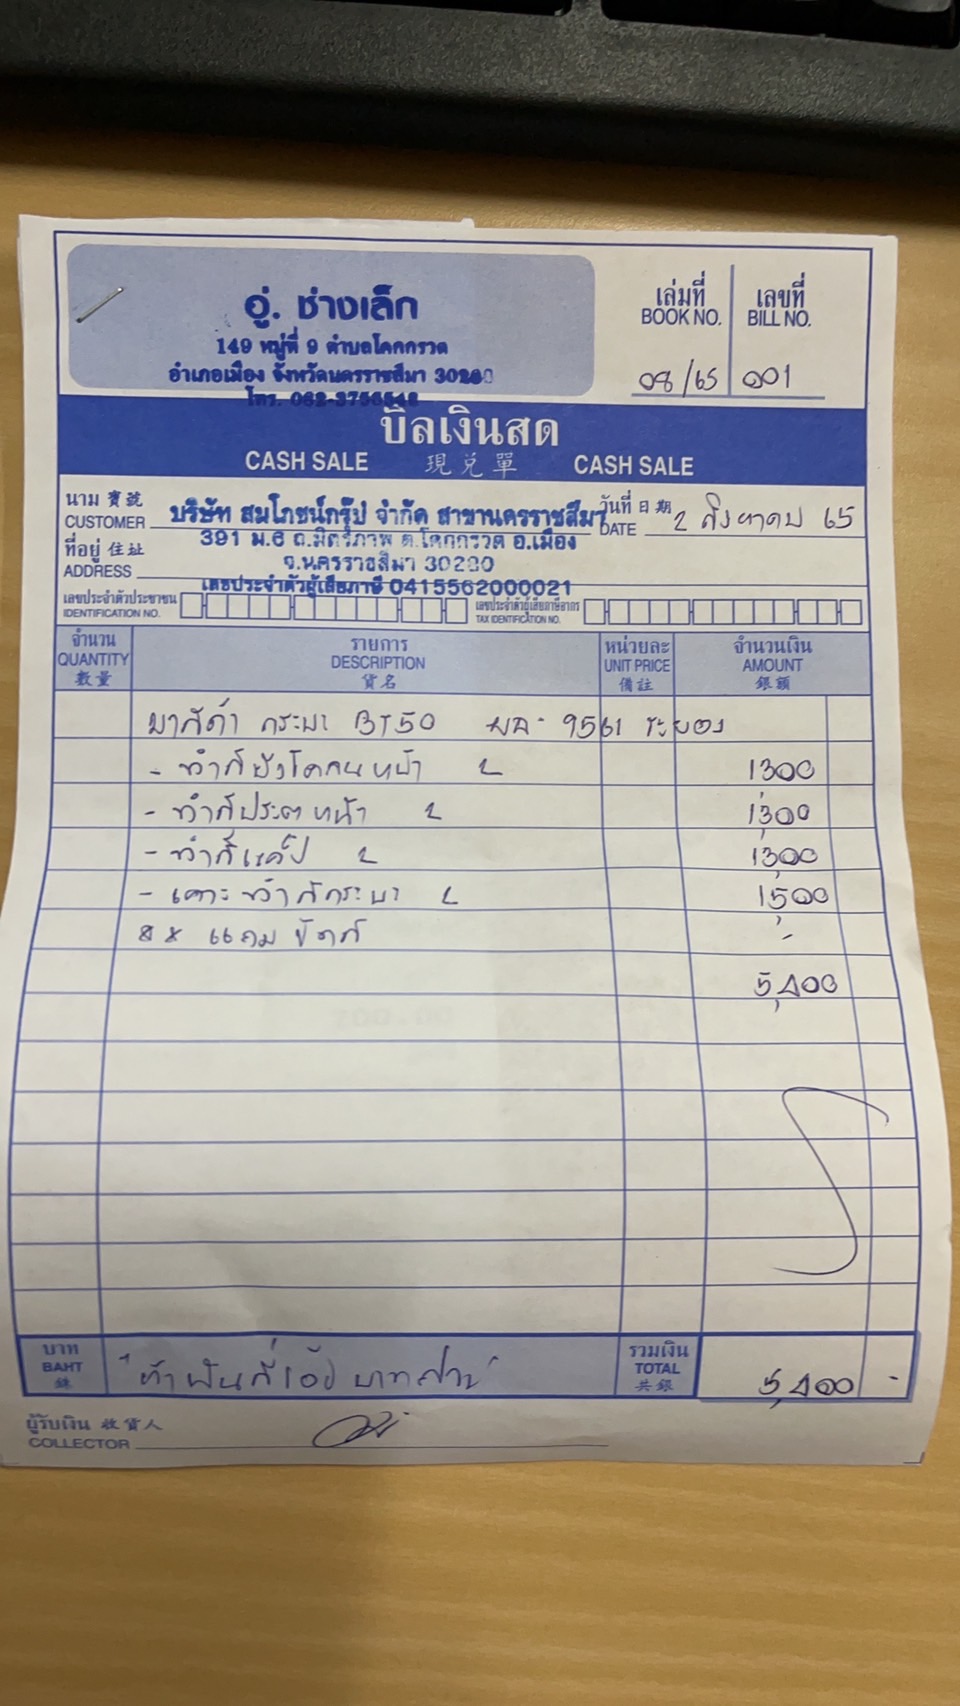 อู่. ช่างเล็ก
149 หมู่ที่ 9 ตำบลโคกกรวด
อำเภอเมือง จังหวัดนครราชสีมา 30280
โทร. 062-3756546
เล่มที่ เลขที่
BOOK NO. BILL NO.
08/65 001
บิลเงินสด
CASH SALE 現兌單 CASH SALE
นาม 寶號 บริษัท สมโภชน์กรุ๊ป จำกัด สาขานครราชสีมา วันที่ 日期
CUSTOMER DATE 2 สิงหาคม 65
ที่อยู่ 住址 391 ม.6 ถ.มิตรภาพ ต.โคกกรวด อ.เมือง
ADDRESS จ.นครราชสีมา 30280
เลขประจำตัวผู้เสียภาษี 0415562000021
เลขประจำตัวประชาชน เลขประจำตัวผู้เสียภาษีอากร
IDENTIFICATION NO. TAX IDENTIFICATION NO.
จำนวน รายการ หน่วยละ จำนวนเงิน
QUANTITY DESCRIPTION UNIT PRICE AMOUNT
數量 貨名 備註 銀額
มาสด้า กระบะ BT50 ผล - 9561 ระยอง
- ทำสีบังโคลนหน้า 1300
- ทำสีประตูหน้า 1,300
- ทำสีแค็ป 1,300
- เคาะทำสีกระบะ 1,500
-
5,400
บาท รวมเงิน
BAHT "ห้าพันสี่ร้อยบาทถ้วน" TOTAL 5,400 -
銖 共銀
ผู้รับเงิน 收貨人
COLLECTOR